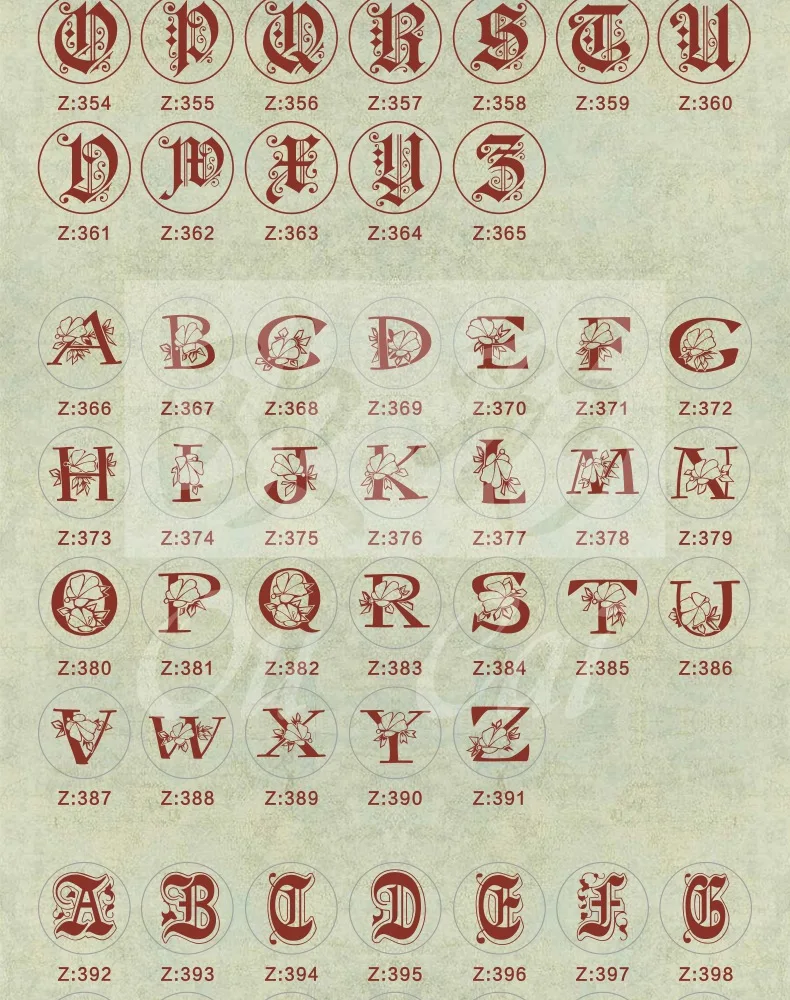 O P Q R S T U
Z:354 Z:355 Z:356 Z:357 Z:358 Z:359 Z:360
V W X Y Z
Z:361 Z:362 Z:363 Z:364 Z:365
A B C D E F G
Z:366 Z:367 Z:368 Z:369 Z:370 Z:371 Z:372
H I J K L M N
Z:373 Z:374 Z:375 Z:376 Z:377 Z:378 Z:379
O P Q R S T U
Z:380 Z:381 Z:382 Z:383 Z:384 Z:385 Z:386
V W X Y Z
Z:387 Z:388 Z:389 Z:390 Z:391
A B C D E F G
Z:392 Z:393 Z:394 Z:395 Z:396 Z:397 Z:398